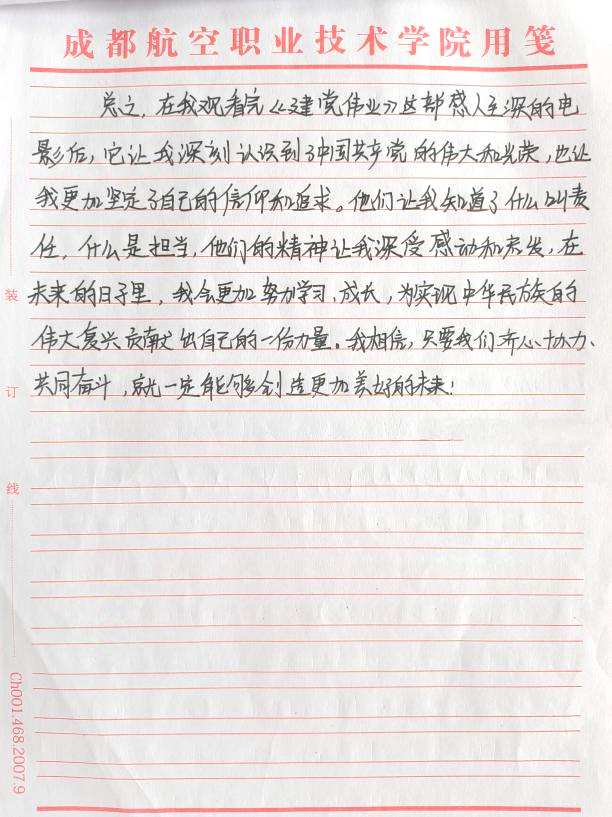 成都航空职业技术学院用笺
总之，在我观看完《建党伟业》这部感人至深的电
影后，它让我深刻认识到了中国共产党的伟大和光荣，也让
我更加坚定了自己的信仰和追求。他们让我知道了什么叫责
任，什么是担当，他们的精神让我深受感动和启发，在
未来的日子里，我会更加努力学习、成长，为实现中华民族的
伟大复兴贡献出自己的一份力量。我相信，只要我们齐心协力、
共同奋斗，就一定能够创造更加美好的未来！
装
订
线
Ch001.468.2007.9